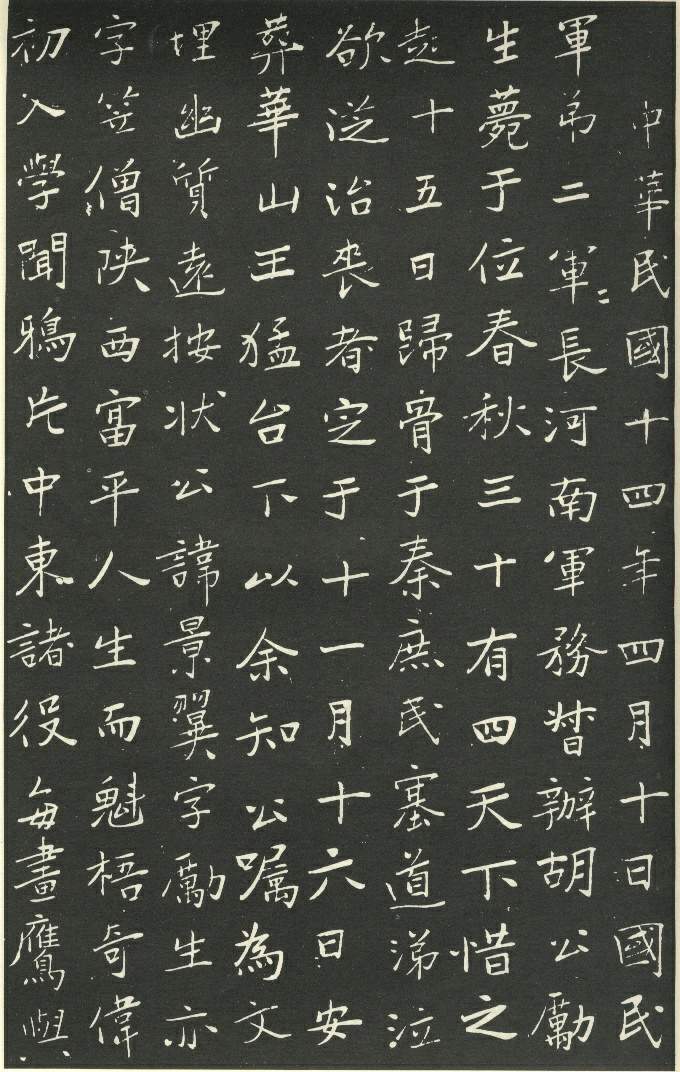 中華民國十四年四月十日國民
軍弟二軍〻長河南軍務督辦胡公勵
生薨于位春秋三十有四天下惜之
越十五日歸骨于秦庶民塞道涕泣
欲從治喪者定于十一月十六日安
葬華山王猛台下以余知公嘱為文
埋幽質遠按狀公諱景翼字勵生亦
字笠僧陝西富平人生而魁梧奇偉
初入學聞鴉片中東諸役每畫鷹與